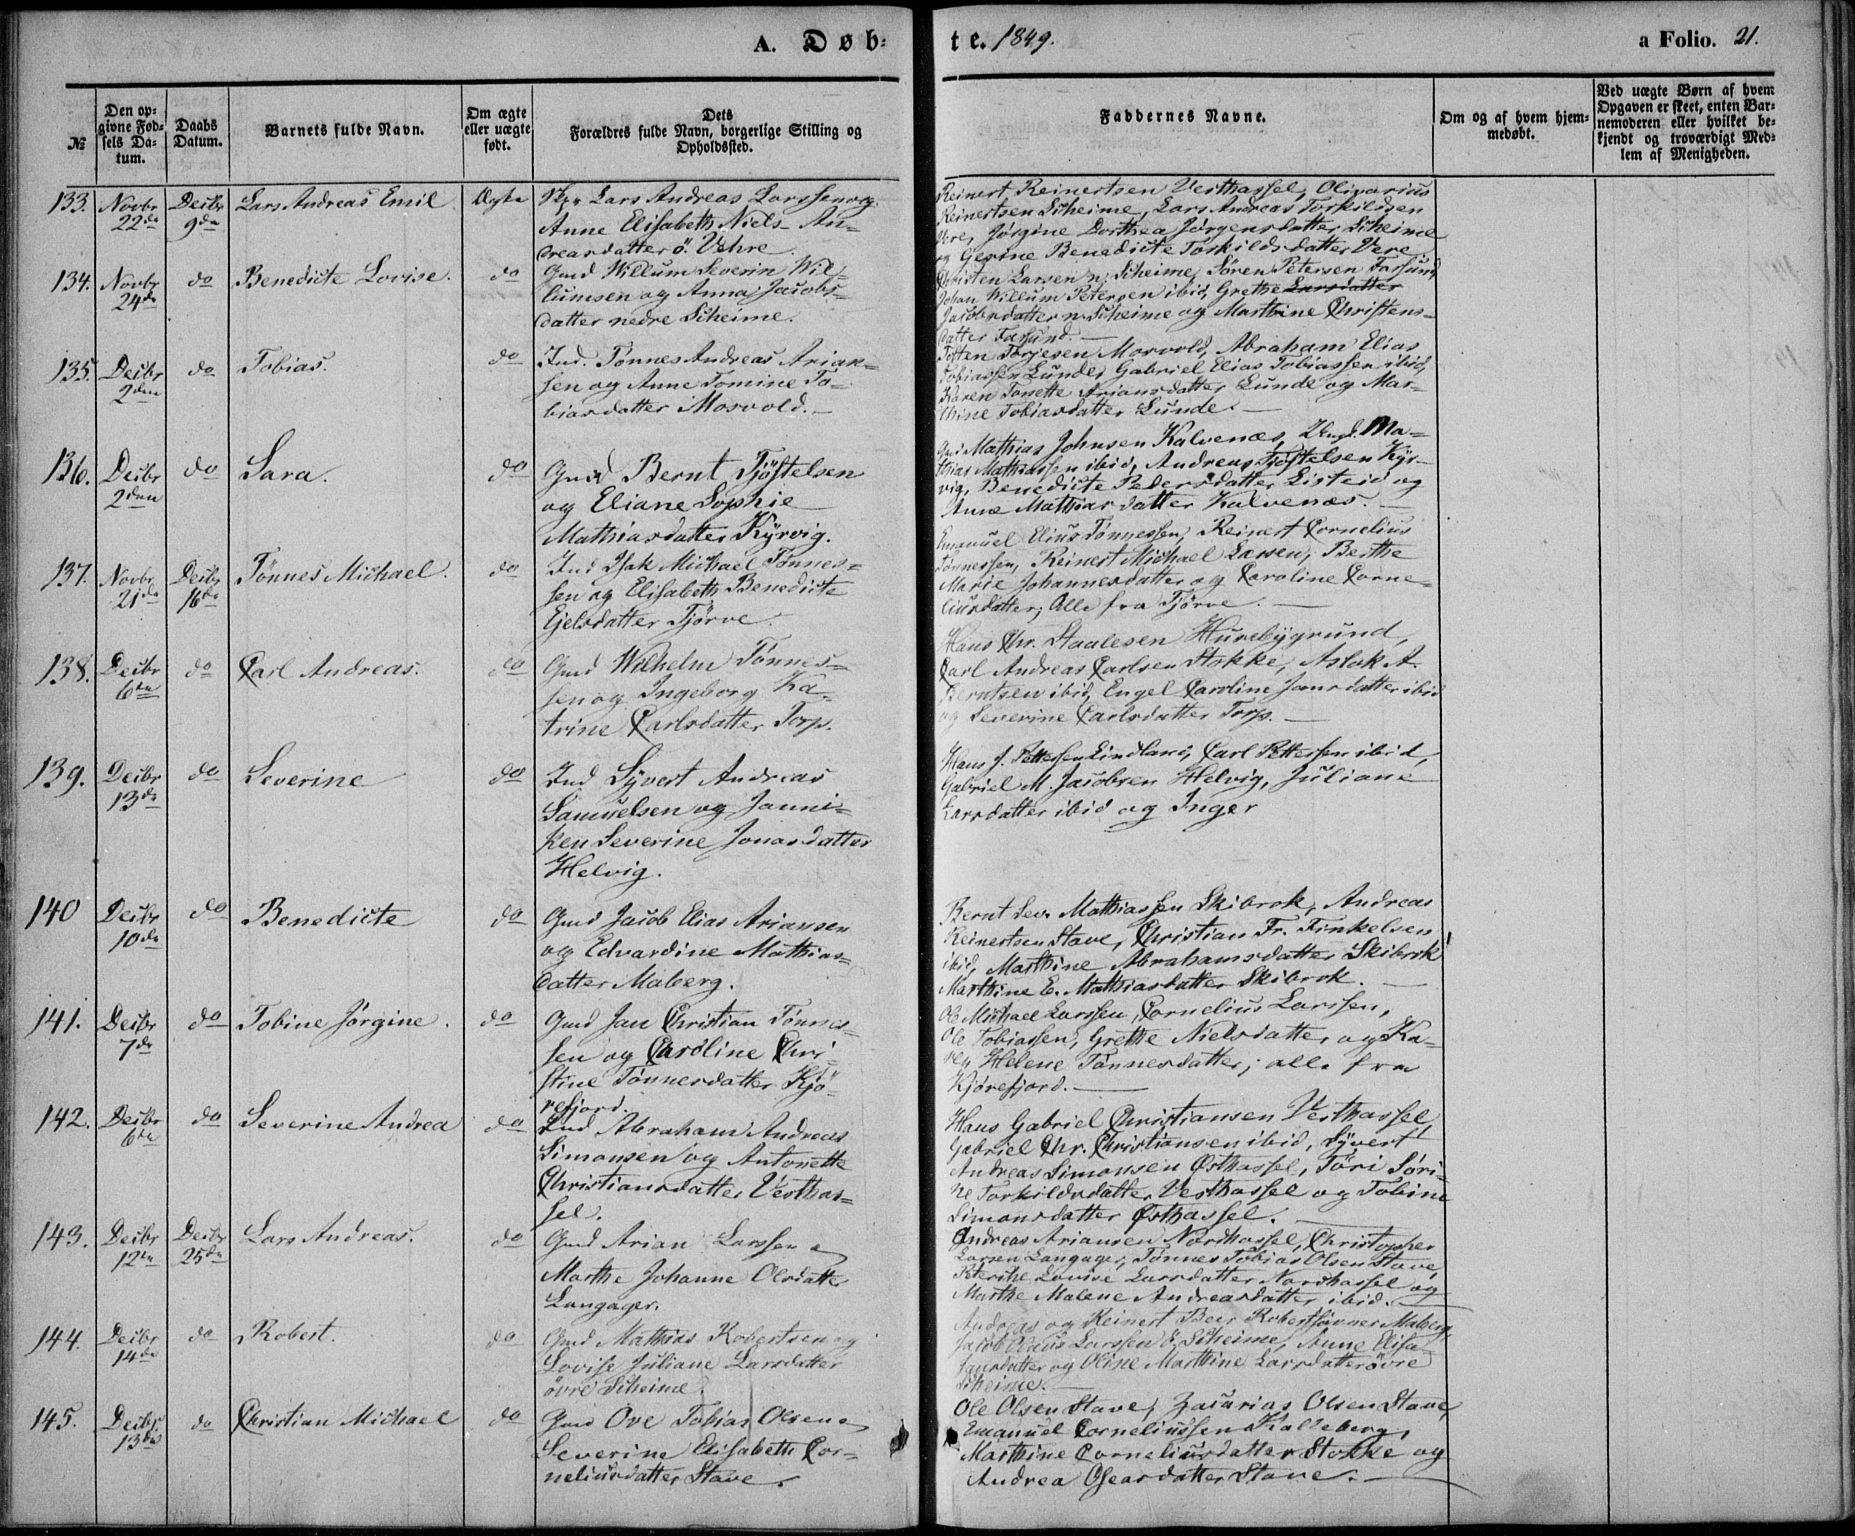 A. Døb=
te. 1849.
a Folio. 21.
№
Den op=
givne Fød=
sels Da=
tum.
Daabs
Datum.
Barnets fulde Navn.
Om ægte
eller uægte
født.
Dets
Forældres fulde Navn, borgerlige Stilling og
Opholdssted.
Faddernes Navne.
Om og af hvem hjem=
medøbt.
Ved uægte Børn af hvem
Opgaven er skeet, enten Bar=
nemoderen eller hvilket be=
kjendt og troværdigt Med=
lem af Menigheden.
133. Novbr 22de Decbr 9de Lars Andreas Emil Ægte
Lars Andreas Larssen og
Anne Elisabeth Niels An=
dreasdatter ö. Vehre.
Reinert Reinertsen Vesthassel, Olivarius
Reinertsen Scheime, Lars Andreas Torkildsen
Vere, Jørgine Dorthea Jørgensdatter Scheime
og Gesine Benedicte Torkildsdatter Vere
134. Novbr 24de do Benedicte Lovise. do
Gmd Willum Severin Wil=
lumsen og Anna Jacobs=
datter nedre Scheime.
Christen Larsen n. Scheime, Sören Petersen Farsund,
Johan Willum Petersen ibid, Grethe Larsdatter
Jacobsdatter n. Scheime og Marthine Christens=
datter Farsund.
135. Decbr 2den do Tobias. do
Ind. Tønnes Andreas Arian=
sen og Anne Tomine To=
biasdatter Mosvold.
Tosten Torjesen Mosvold, Abraham Elias
Tobiassen Lunde, Gabriel Elias Tobiassen ibid,
Karen Tonette Ariansdatter Lunde og Mar=
thine Tobiasdatter Lunde.
136. Decbr 2den do Sara. do
Gmd Bernt Tjöstelsen
og Eliane Sophie
Mathiasdatter Kyrvig.
Gmd Mathias Johnsen Kalvenæs, Ungk. Ma=
thias Mathiassen ibid, Andreas Tjöstelsen Kyr=
vig, Benedicte Pedersdatter Listeid og
Anne Mathiasdatter Kalvenæs.
137. Novbr 21de Decbr 16de Tönnes Michael. do
Ind Isak Michael Tønnes=
sen og Elisabeth Benedicte
Ejelsdatter Tjörve.
Emanuel Elius Tönnessen, Reinert Cornelius
Tönnessen, Reinert Michael Larsen, Berthe
Marie Johannesdatter og Caroline Corne=
liusdatter, Alle fra Tjörve.
138. Decbr 6te do Carl Andreas. do
Gmd Wilhelm Tönnes=
sen og Ingeborg Ka=
trine Carlsdatter Torp.
Hans Chr. Staalesen Hurebygrund,
Carl Andreas Carlsen Stokke, Aslak A.
Berntsen ibid, Engel Caroline Jansdatter ibid
og Severine Carlsdatter Torp.
139. Decbr 13de do Severine do
Ind Syvert Andreas
Samuelsen og Janni=
ken Severine Jonasdatter
Helvig.
Hans J. Pettersen Lindland, Carl Pettersen ibid,
Gabriel M. Jacobsen Helvig, Juliane
Larsdatter ibid og Inger
140 Decbr 10de do Benedicte do
Gmd Jacob Elias Ariansen
og Edvardine Mathias=
datter Maberg.
Bernt Sev. Mathiassen Skibrok, Andreas
Reinertsen Stave, Christian Fr. Finkelsen
ibid, Marthine Abrahamsdatter Skibrok
Marthine E. Mathiasdatter Skibrok.
141. Decbr 7de do Tobine Jørgine. do
Gmd Jan Christian Tönnes=
sen og Caroline Chri=
stine Tönnesdatter Kjö=
refjord.
Ole Michael Larssen, Cornelius Larssen,
Ole Tobiassen, Grethe Nielsdatter og Ka=
ren Helene Tönnesdatter; alle fra
Kjörefjord.
142. Decbr 6te do Severine Andrea do
Ind Abraham Andreas
Simonsen og Antonette
Christiansdatter Vesthas=
sel.
Hans Gabriel Christiansen Vesthassel,
Gabriel Chr. Christiansen ibid, Syvert
Andreas Simonsen Østhassel, Töri Söri=
ne Torkildsdatter Vesthassel og Tobine
Simonsdatter Østhassel.
143. Decbr 12te Decbr 25de Lars Andreas. do
Gmd Arian Larssen
Marthe Johanne Olsdatter
Langager.
Andreas Ariansen Nordhassel, Christopher
Larsen Langager, Tönnes Tobias Olsen Stave,
Lovise Larsdatter Nordhassel og
Marthe Malene Andreasdatter ibid.
144. Decbr 14de do Robert. do
Gmd Mathias Robertsen og
Lovise Juliane Larsdatter
övre Scheime.
Andreas og Reinert Beer Robertssönner Maberg,
Jacob Larssen ö. Scheime, Anne Elisa
og Oline Marthine Larsdatter övre
Scheime.
145. Decbr 13de do Christian Michael do
Gmd Ove Tobias Olsen
Severine Elisabeth Cor=
neliusdatter Stave.
Ole Olsen Stave, Zacarias Olsen Stave,
Emanuel Corneliussen Kalleberg,
Marthine Corneliusdatter Stokke og
Andrea Osearsdatter Stave.